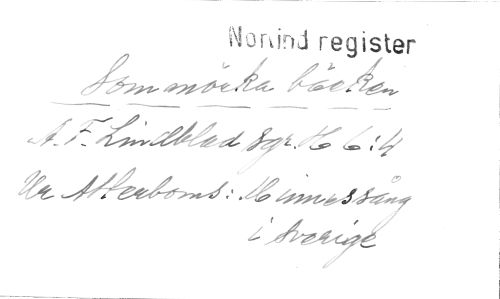 Nonind register
Som mörka bäcken
A. F. Lindblad Sgr. H 6:4
Ur Atterboms: Minnessång
i Sverige